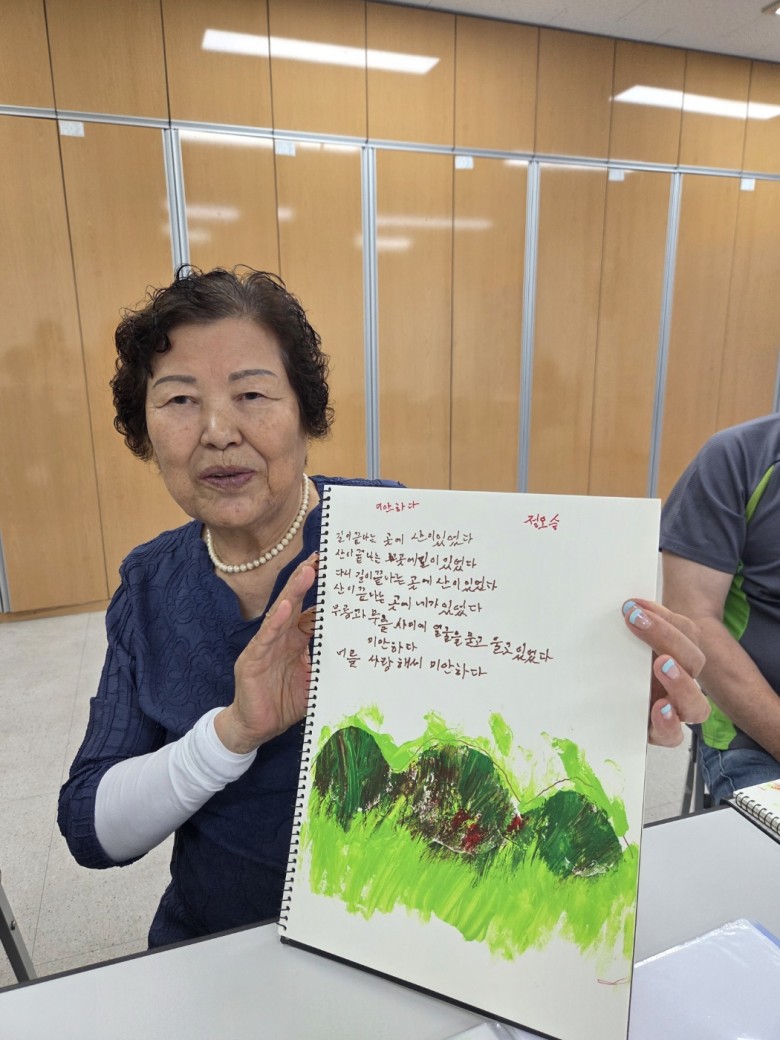 미안하다
정오슬
길이 끝나는 곳에 산이 있었다
산이 끝나는 곳에 길이 있었다
다시 길이 끝나는 곳에 산이 있었다
산이 끝나는 곳에 네가 있었다
무릎과 무릎 사이에 얼굴을 묻고 울고 있었다
미안하다
너를 사랑해서 미안하다